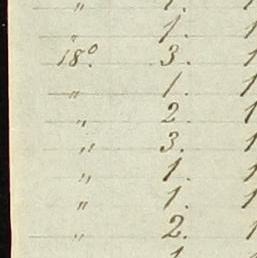 〃 1. 1
〃 1. 1
18⁰. 3. 1
〃 1. 1
〃 2. 1
〃 3. 1
〃 1. 1
〃 1. 1
〃 2. 1